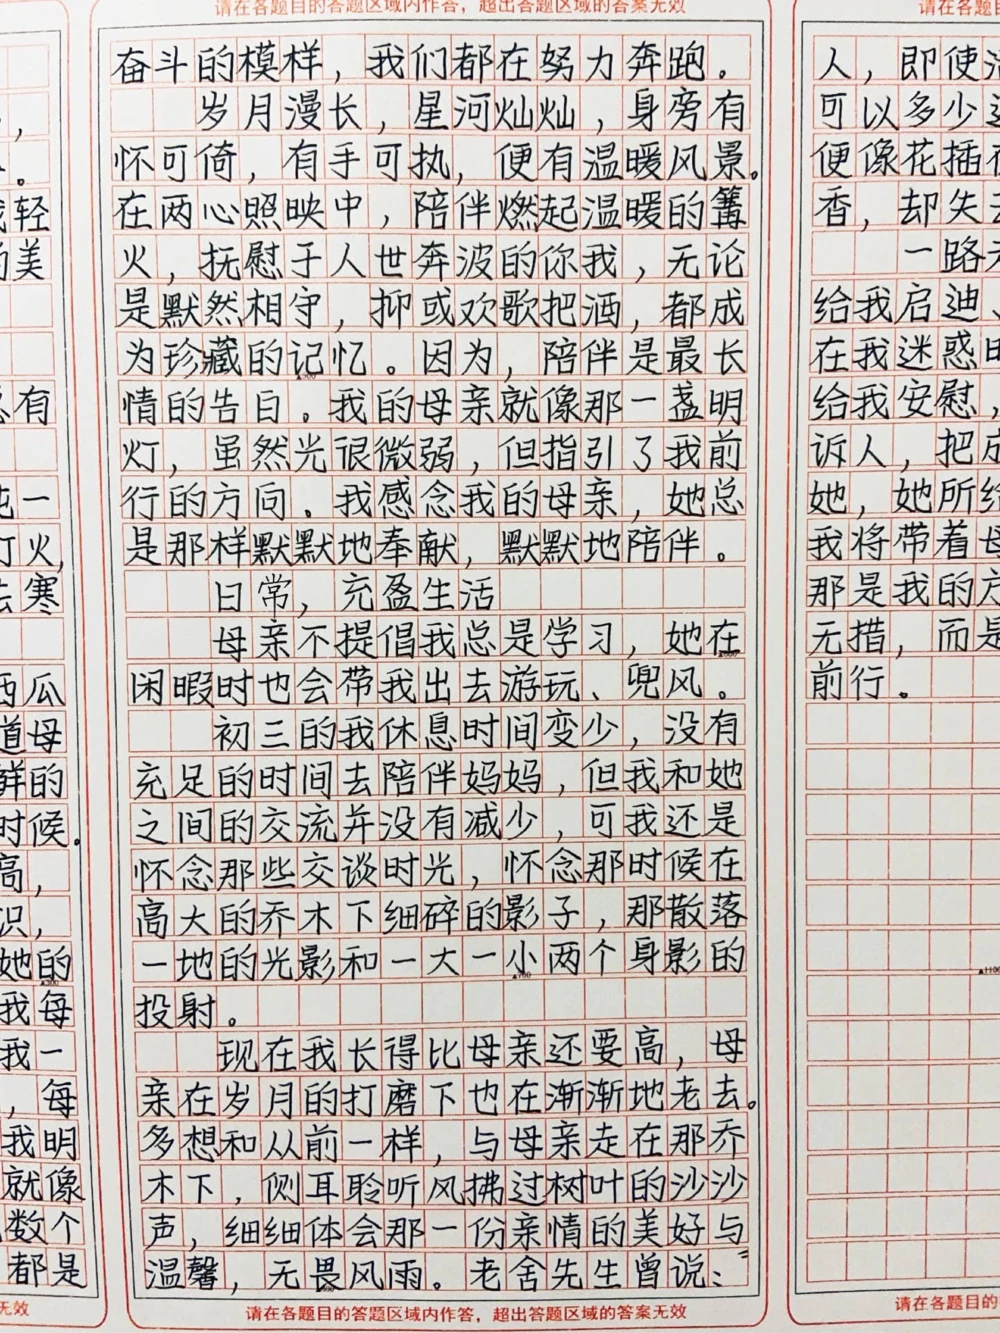 请在各题目的答题区域内作答，超出答题区域的答案无效
奋斗的模样，我们都在努力奔跑。
岁月漫长，星河灿灿，身旁有
怀可倚，有手可执，便有温暖风景。
在两心照映中，陪伴燃起温暖的篝
火，抚慰于人世奔波的你我，无论
是默然相守，抑或欢歌把洒，都成
为珍藏的记忆。因为，陪伴是最长
情的告白。我的母亲就像那一盏明
灯，虽然光很微弱，但指引了我前
行的方向。我感念我的母亲，她总
是那样默默地奉献，默默地陪伴。
日常，充盈生活
母亲不提倡我总是学习，她在
闲暇时也会带我出去游玩、兜风。
初三的我休息时间变少，没有
充足的时间去陪伴妈妈，但我和她
之间的交流并没有减少，可我还是
怀念那些交谈时光，怀念那时候在
高大的乔木下细碎的影子，那散落
一地的光影和一大一小两个身影的
投射。
现在我长得比母亲还要高，母
亲在岁月的打磨下也在渐渐地老去。
多想和从前一样，与母亲走在那乔
木下，侧耳聆听风拂过树叶的沙沙
声，细细体会那一份亲情的美好与
温馨，无畏风雨。老舍先生曾说：“
请在各题目的答题区域内作答，超出答题区域的答案无效
，
。
我轻
的美
总有
一
灯火，
去寒
西瓜
道母
鲜的
时候。
高，
识，
她的
我每
我一
，每
我明
就像
数个
都是
无效
请在各题目
人，即使
可以多少
便像花插在
香，却失去
一路
给我启迪、
在我迷惑时
给我安慰，
诉人，把
她，她所给
我将带着母
那是我的方
无措，而是
前行。
请在各题目的